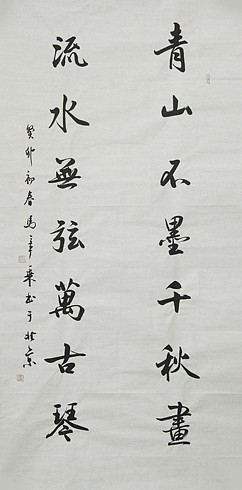 青山不墨千秋畫
流水無弦萬古琴
癸卯初春馬章乘書于北京